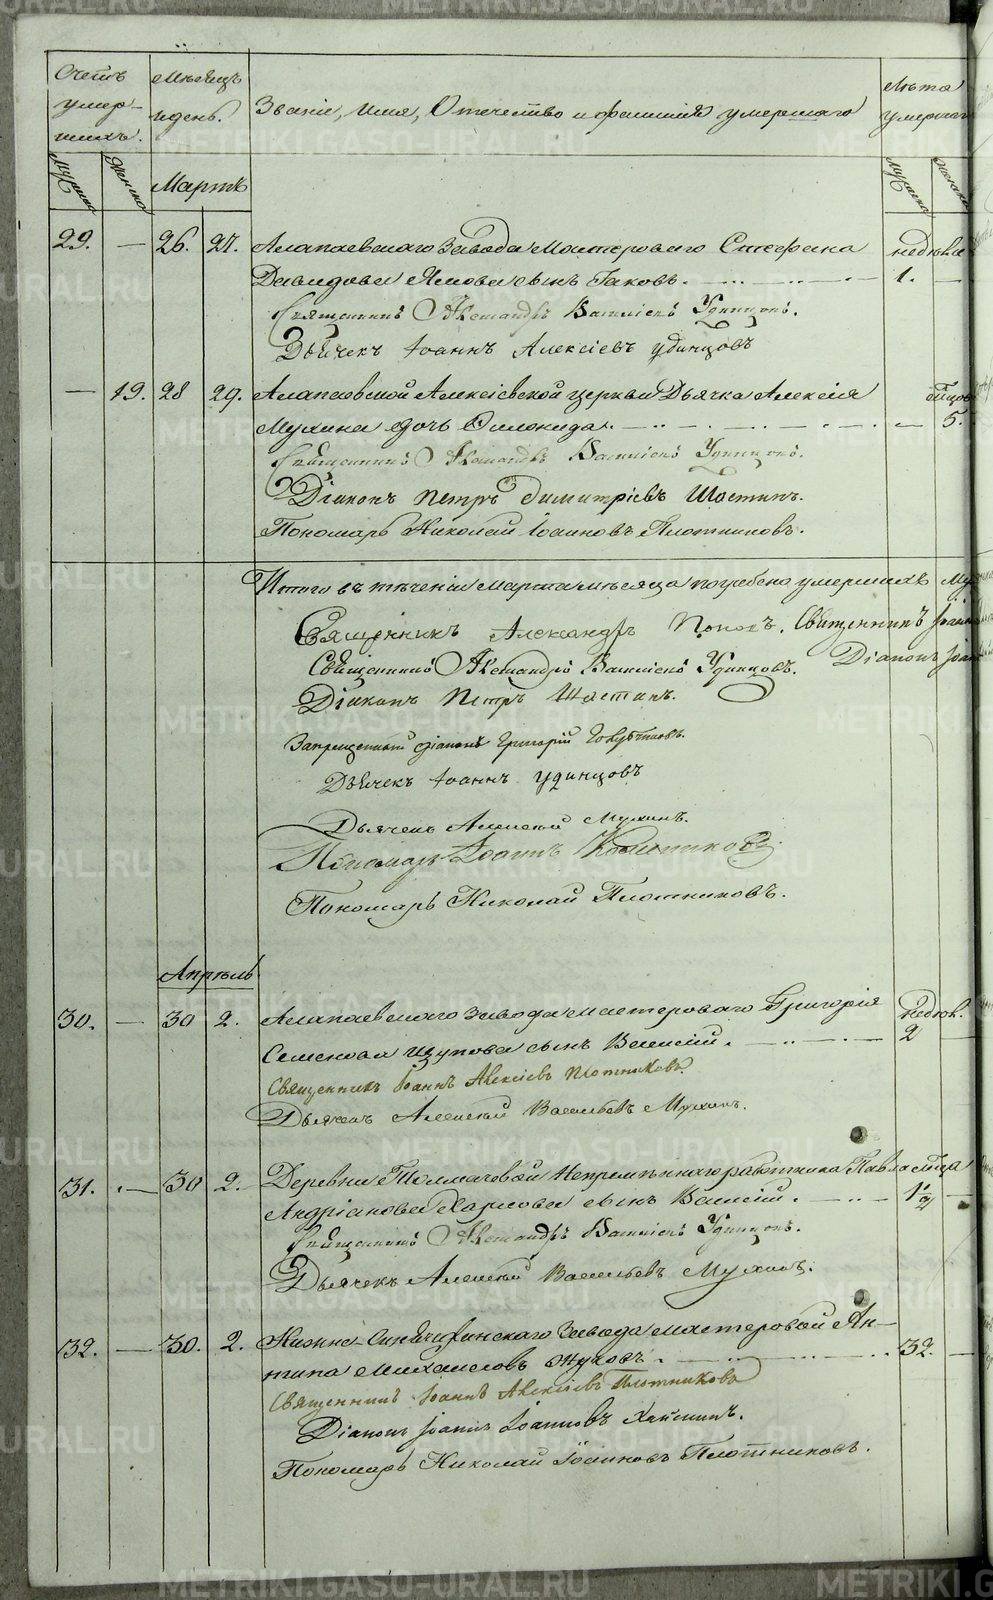 Счетъ умер-шихъ.
Мѣсяцъ и день.
Званіе, Имя, Отечество и фамилія умершаго
Лѣта умершаго
Мужска Женска
Мартъ
Мужска
29. — 26. 27. Алапаевскаго Завода Мастероваго Стефана недѣль
Давидова сынъ Іаковъ. 1. —
Священникъ Александръ Васильевъ Удинцовъ.
Дьячекъ Іоаннъ Алексіевъ Удинцовъ
— 19. 28 29. Алапаевской Алексіевской церкви Дьячка Алексія
Мухина дочь — 5.
Священникъ Александръ Васильевъ Удинцовъ.
Діаконъ Петръ Димитріевъ Шастинъ.
Пономарь Николай Іоанновъ Плотниковъ.
Итого въ теченіи Марта мѣсяца погребено умершихъ
Священникъ Александръ Поповъ. Священникъ Іоаннъ
Священникъ Александръ Васильевъ Удинцовъ. Діаконъ Іоаннъ
Діаконъ Петръ Шастинъ.
Запрещенный діаконъ Григорій
Дьячекъ Іоаннъ Удинцовъ
Дьячекъ Алексій Мухинъ.
Пономарь Іоаннъ
Пономарь Николай Плотниковъ.
Апрѣль
30. — 30 2. Алапаевскаго Завода мастероваго Григорія недѣл.
Семенова Щупова сынъ Василій. 2
Священникъ Іоаннъ Алексіевъ Плотниковъ
Дьячекъ Алексій Васильевъ Мухинъ.
31. — 30 2. Деревни Толмачевой Непремѣннаго работника Павла
Андріанова сынъ Василій. 1½ —
Священникъ Александръ Васильевъ Удинцовъ.
Дьячекъ Алексій Васильевъ Мухинъ.
32. — 30. 2. Нижне-Синячихинскаго Завода мастеровой Ан-
типа Михаиловъ Жуковъ. 32. —
Священникъ Іоаннъ Алексіевъ Плотниковъ
Діаконъ Іоаннъ Іоанновъ
Пономарь Николай Іоанновъ Плотниковъ.
METRIKI.GASO-URAL.RU